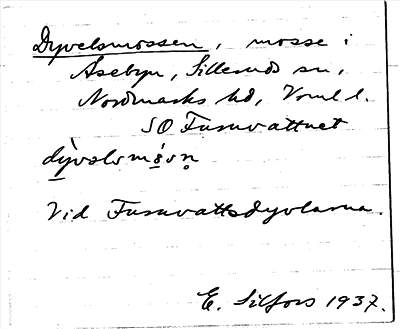 Dyvelsmossen, mosse i
Åsebyn, Silleruds sn,
Nordmarks hd, Vrml l.
SO Furuvattnet
dỳvəlsmåsn̥
Vid Furuvattsdyvlarna.
E. Silfors 1937.